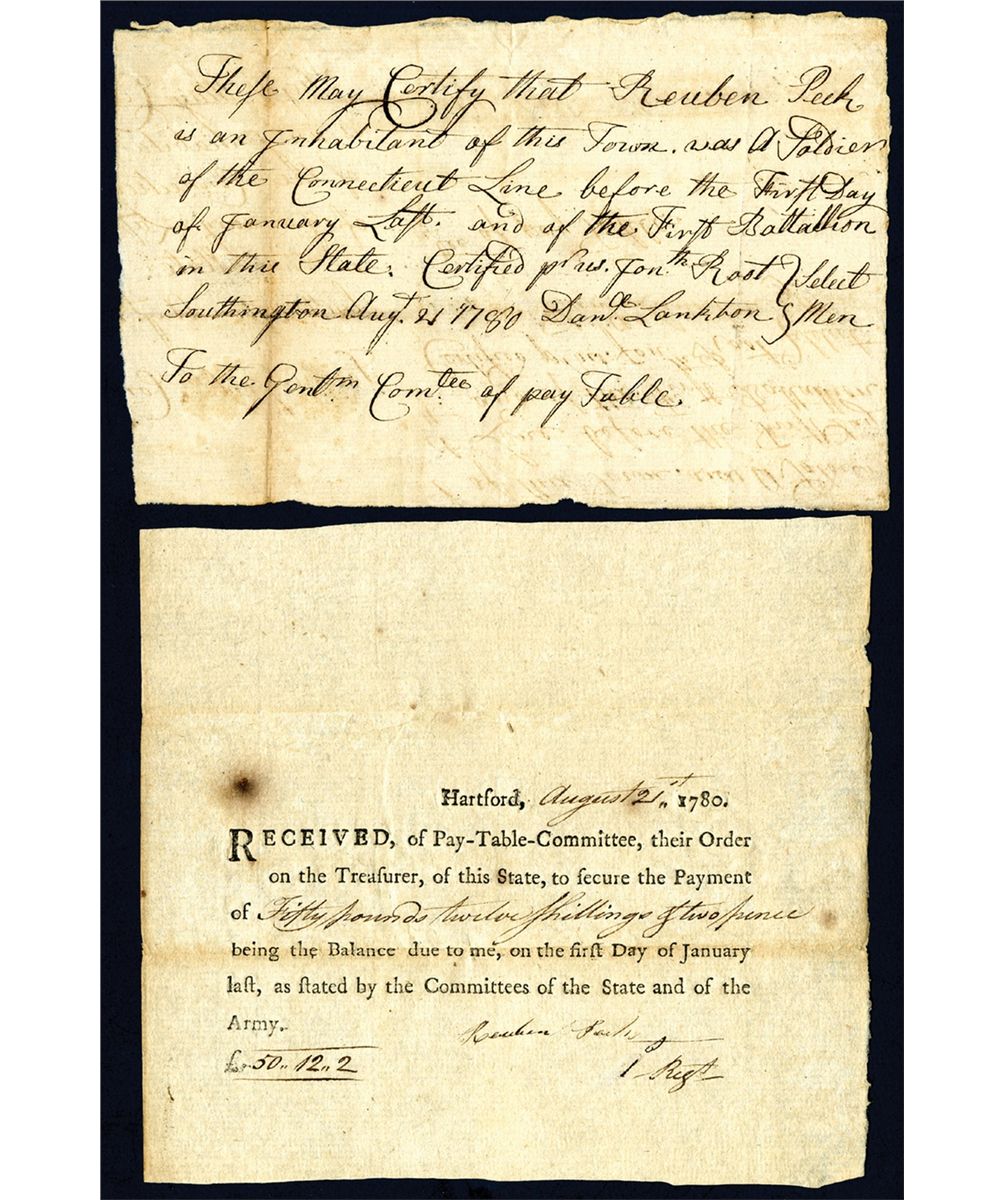 Theſe May Certify that Reuben Peck
is an Inhabitant of this Town. was A Soldier
of the Connecticut Line before the Firſt Day
of January Laſt. and of the Firſt Battallion
in this State. Certified pr us. Jonth Root } Select
Southington Augt. 21 1780 Danl Lankton } Men
To the Gentm Comtee of pay Table
Hartford, August 21st 1780.
RECEIVED, of Pay-Table-Committee, their Order
on the Treaſurer, of this State, to ſecure the Payment
of Fifty pounds twelve ſhillings & two pence
being the Balance due to me, on the firſt Day of January
laſt, as ſtated by the Committees of the State and of the
Army.
Reuben Peck
£. 50,, 12,, 2
1 Regt